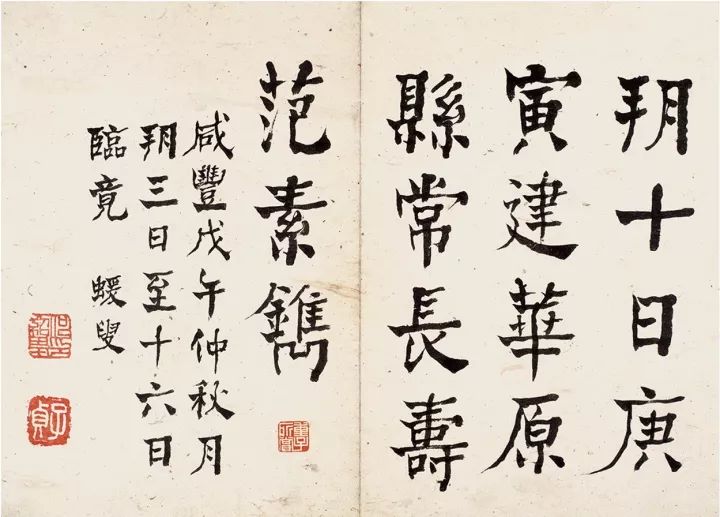 朔十日庚
寅建華原
縣常長壽
范素鐫
咸豐戊午仲秋月
朔三日至十六日
臨竟 蝯叟
子貞